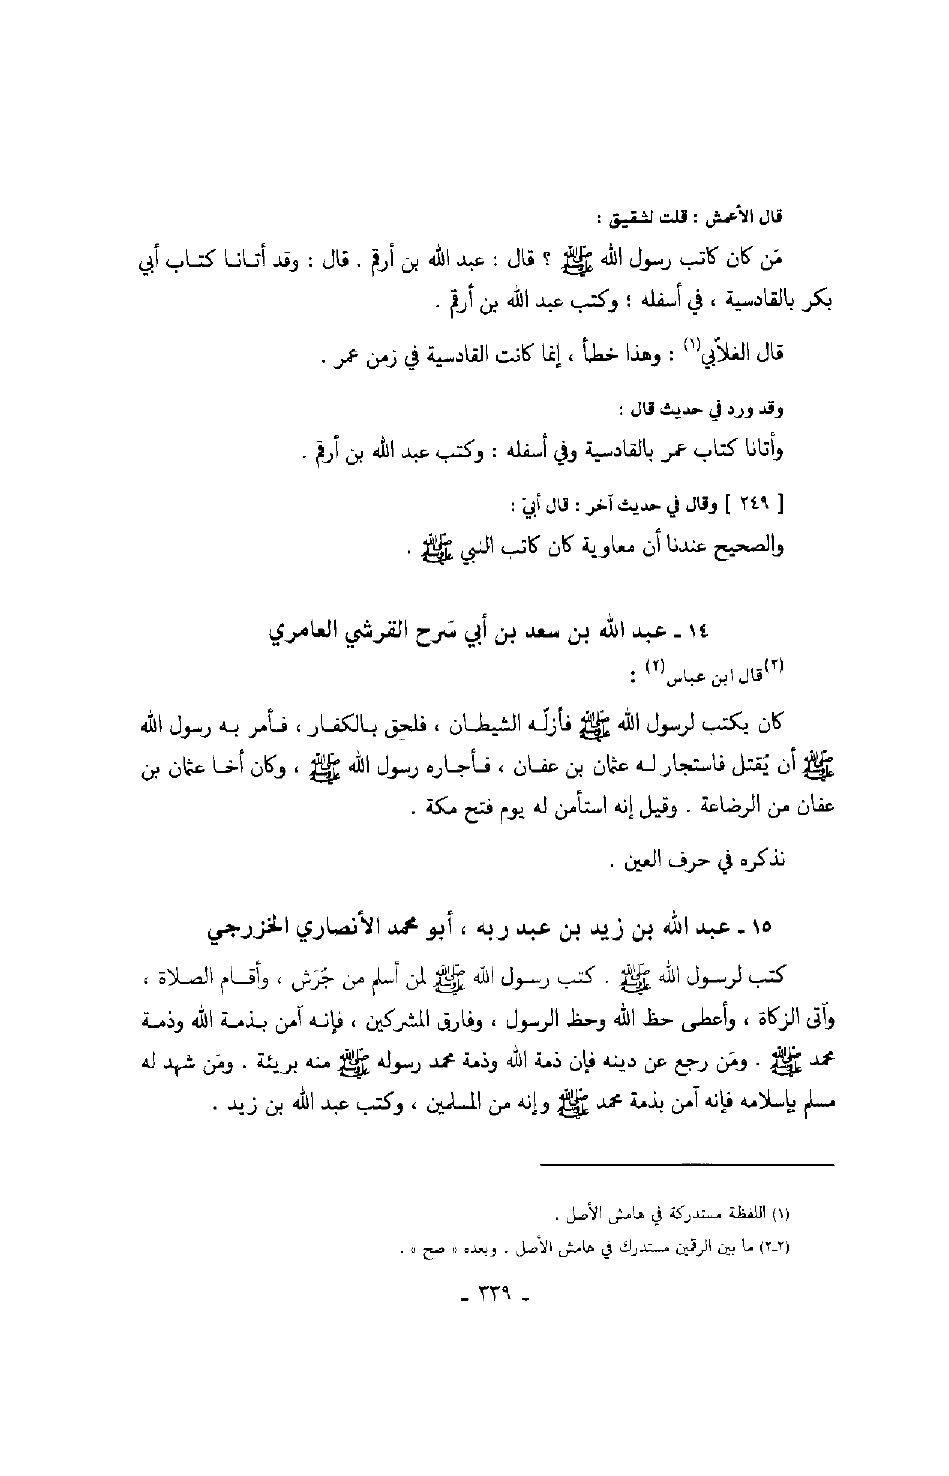 قال الأعمش : قلت لشقيق :
مَن كان كاتب رسول الله ﷺ ؟ قال : عبد الله بن أرقم . قال : وقد أتانا كتاب أبي
بكر بالقادسية ، في أسفله ؛ وكتب عبد الله بن أرقم .
قال الغلاّبي(١) : وهذا خطأ ، إنما كانت القادسية في زمن عمر .
وقد ورد في حديث قال :
وأتانا كتاب عمر بالقادسية وفي أسفله : وكتب عبد الله بن أرقم .
[ ٢٤٩ ] وقال في حديث آخر : قال أبيّ :
والصحيح عندنا أن معاوية كان كاتب النبي ﷺ .
١٤ ـ عبد الله بن سعد بن أبي سَرح القرشي العامري
(٢)قال ابن عباس(٢) :
كان يكتب لرسول الله ﷺ فأزلّه الشيطان ، فلحق بالكفار ، فأمر به رسول الله
ﷺ أن يُقتل فاستجار له عثمان بن عفان ، فأجاره رسول الله ﷺ ، وكان أخا عثمان بن
عفان من الرضاعة . وقيل إنه استأمن له يوم فتح مكة .
نذكره في حرف العين .
١٥ ـ عبد الله بن زيد بن عبد ربه ، أبو محمد الأنصاري الخزرجي
كتب لرسول الله ﷺ . كتب رسول الله ﷺ لمن أسلم من جُرَش ، وأقام الصلاة ،
وآتى الزكاة ، وأعطى حظ الله وحظ الرسول ، وفارق المشركين ، فإنه آمن بذمة الله وذمة
محمد ﷺ . ومَن رجع عن دينه فإن ذمة الله وذمة محمد رسوله ﷺ منه بريئة . ومَن شهد له
مسلم بإسلامه فإنه آمن بذمة محمد ﷺ وإنه من المسلمين ، وكتب عبد الله بن زيد .
(١) اللفظة مستدركة في هامش الأصل .
(٢ـ٢) ما بين الرقمين مستدرك في هامش الأصل . وبعده « صح » .
ـ ٣٣٩ ـ